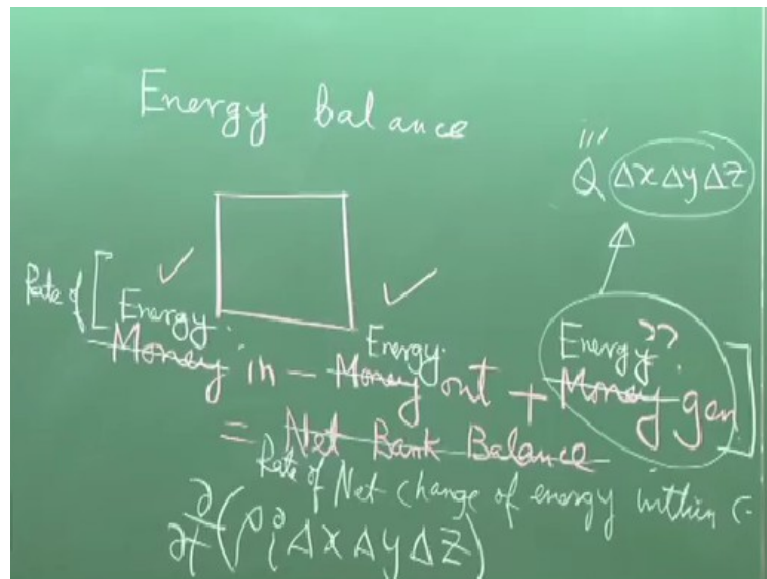 Energy balance
Q''' Δx Δy Δz
Rate of [ Energy
Energy
Energy ??
Money in - Money out + Money gen ]
= Net Bank Balance
Rate of Net change of energy within
∂/∂t (ρ i Δx Δy Δz)